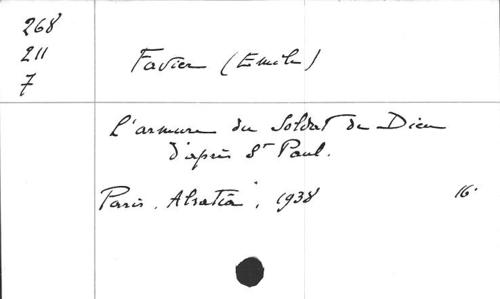 268
211
7
Favier (Emile)
L'armure du Soldat de Dieu
d'après St Paul.
Paris. Alsatia, 1938 16.